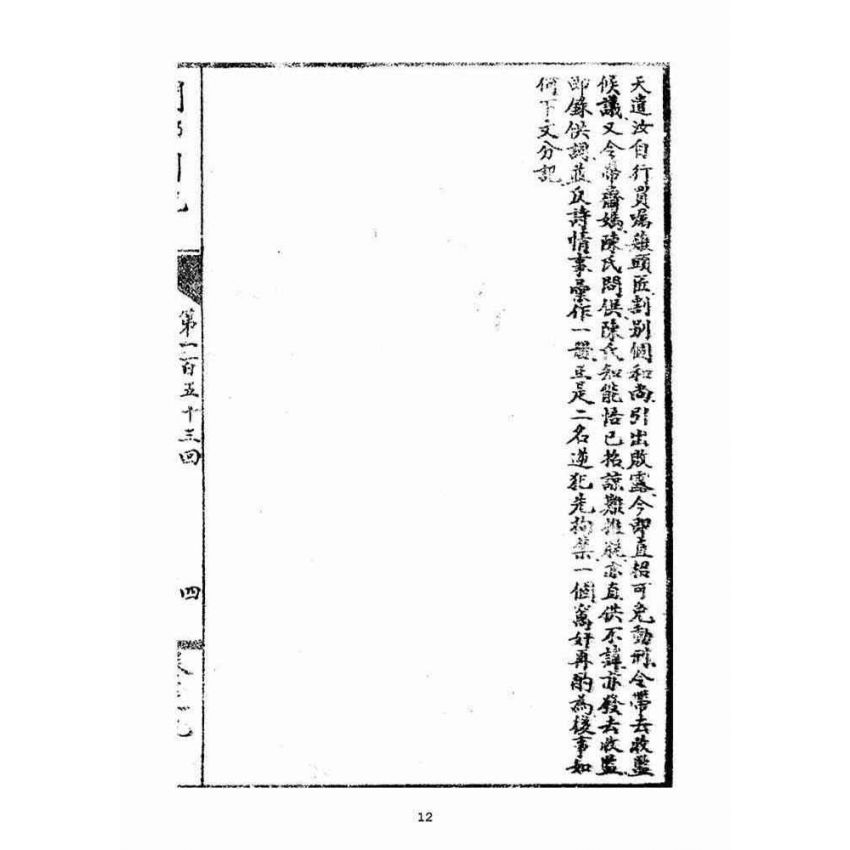 天遣汝自行買嘱薙頭匠割别個和尚引出敗露今即直招可免動刑令帶去收監
候議又令帶齋媽陳氏問供陳氏知能悟已招諒難推脱亦直供不諱亦發去收監
即錄供詞並反詩情事彙作一疊正是二名逆犯先拘禁一個窩奸再酌為後事如
何下文分記
第一百五十三回
四
12